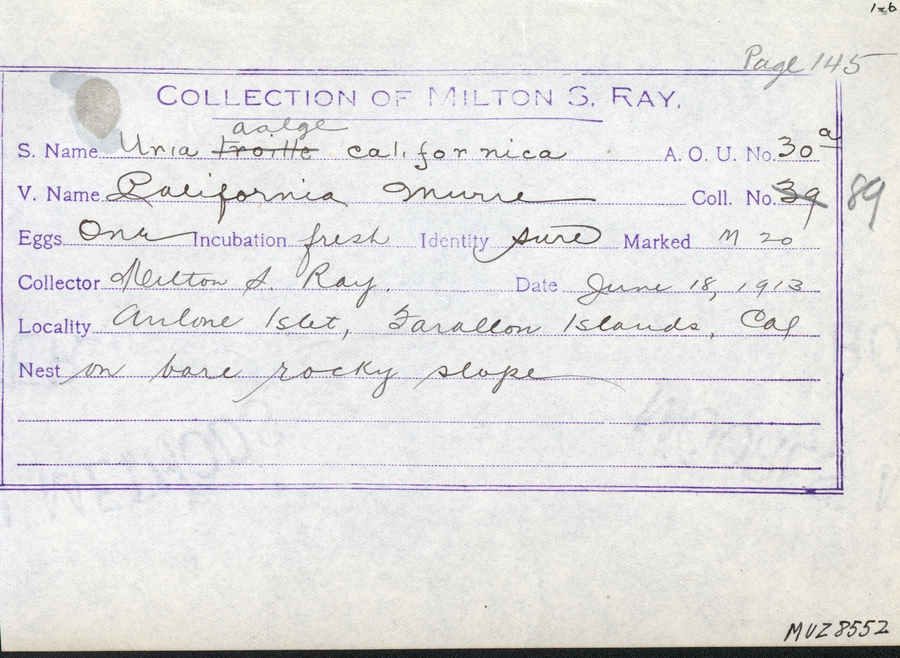 1=6
Page 145
COLLECTION OF MILTON S. RAY.
aalge
S. Name Uria troille californica A. O. U. No. 30a
V. Name California Murre Coll. No. 39 89
Eggs One Incubation fresh Identity sure Marked M 20
Collector Milton S. Ray. Date June 18, 1913
Locality Arlone Islet, Farallon Islands, Cal
Nest on bare rocky slope
MVZ 8552